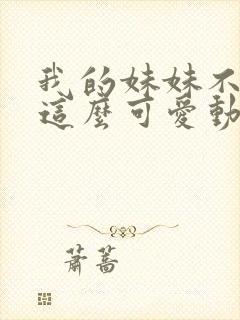 我的妹妹不
這麼可愛動
蕭蒿